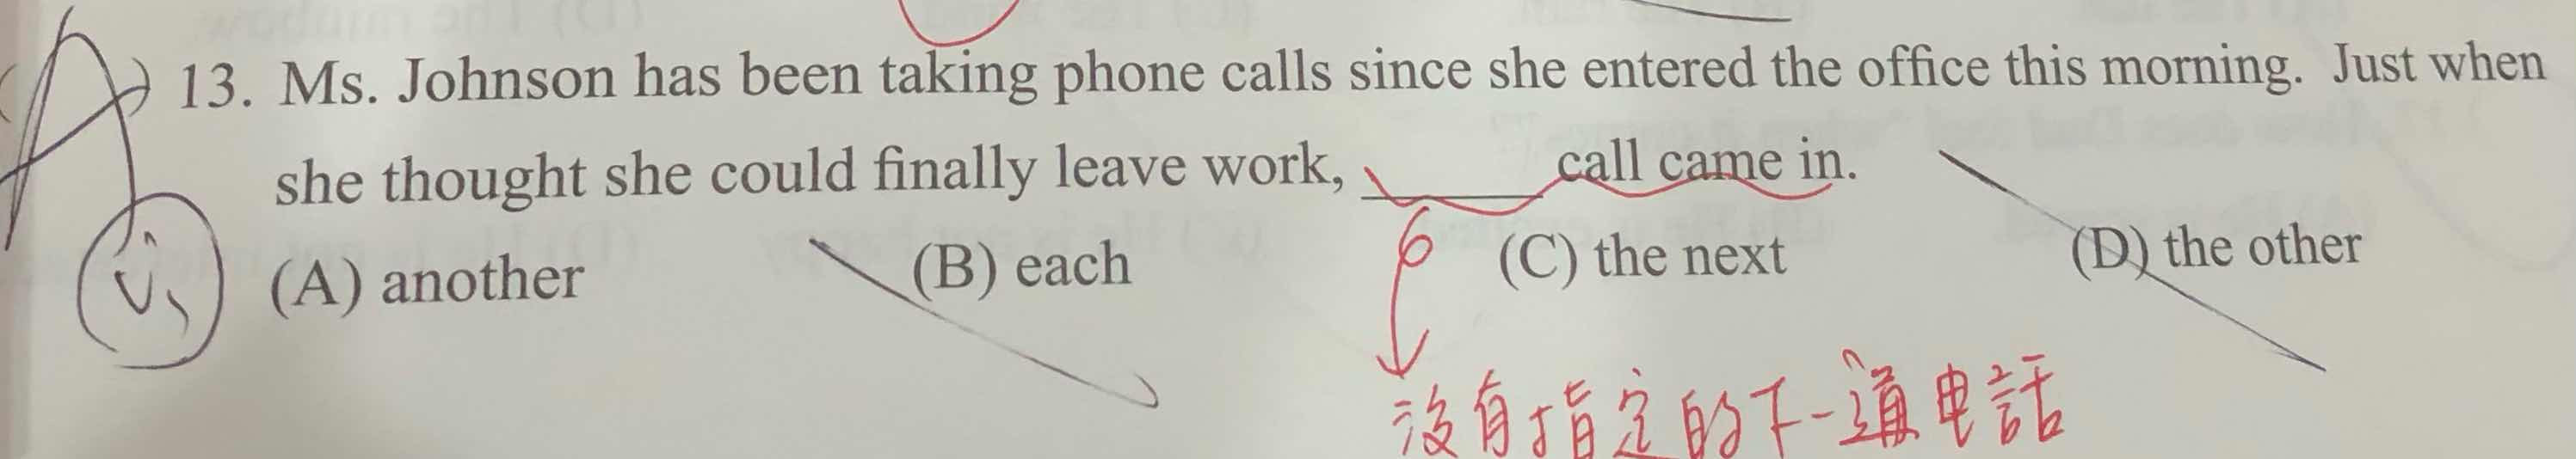 (A) 13. Ms. Johnson has been taking phone calls since she entered the office this morning. Just when
she thought she could finally leave work, ______ call came in.
(A) another (B) each (C) the next (D) the other
沒有指定的下一通電話